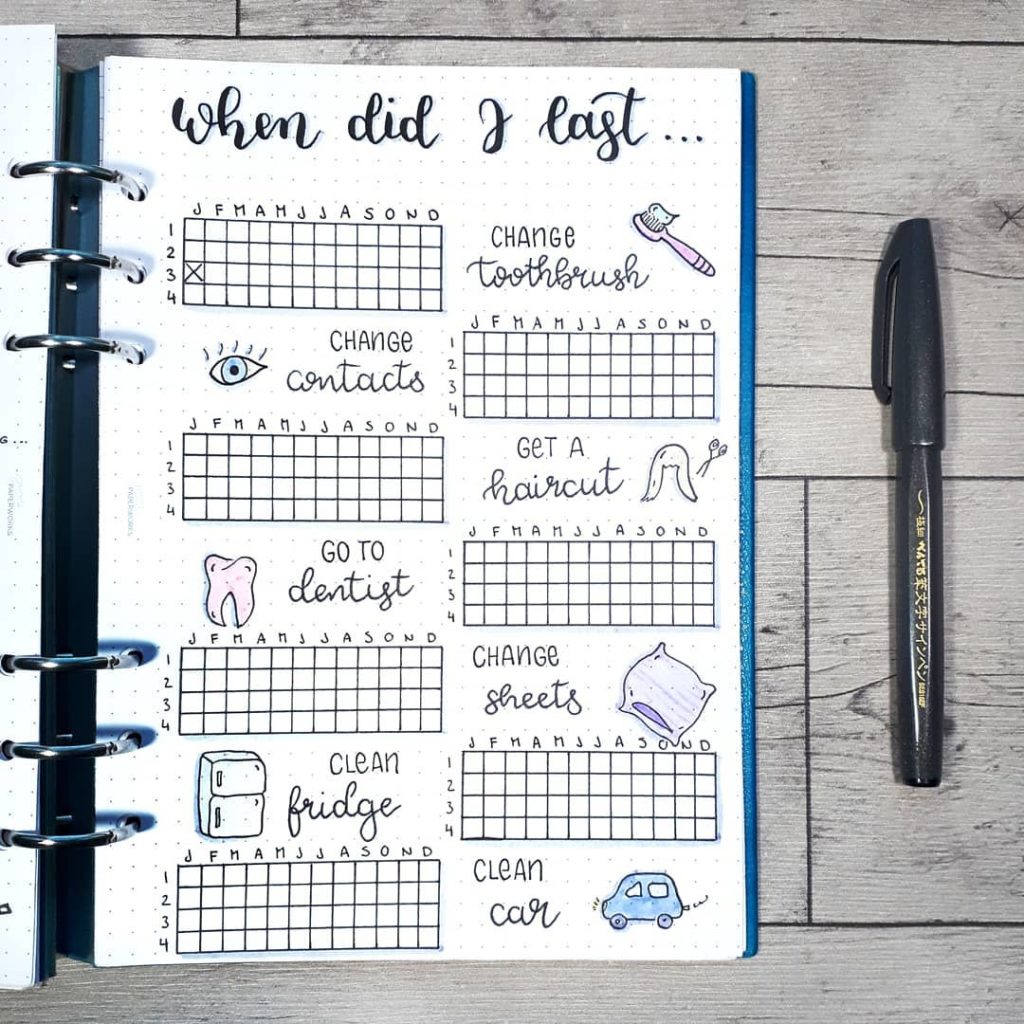 when did I last...
J F M A M J J A S O N D
1
2
3
4
CHANGE
toothbrush
CHANGE
contacts
J F M A M J J A S O N D
1
2
3
4
J F M A M J J A S O N D
1
2
3
4
GET A
haircut
GO TO
dentist
J F M A M J J A S O N D
1
2
3
4
J F M A M J J A S O N D
1
2
3
4
CHANGE
sheets
CLEAN
fridge
J F M A M J J A S O N D
1
2
3
4
J F M A M J J A S O N D
1
2
3
4
CLEAN
car
G...
PAPERWORKS
PAPERWORKS
ぺんてる筆文字サインペン